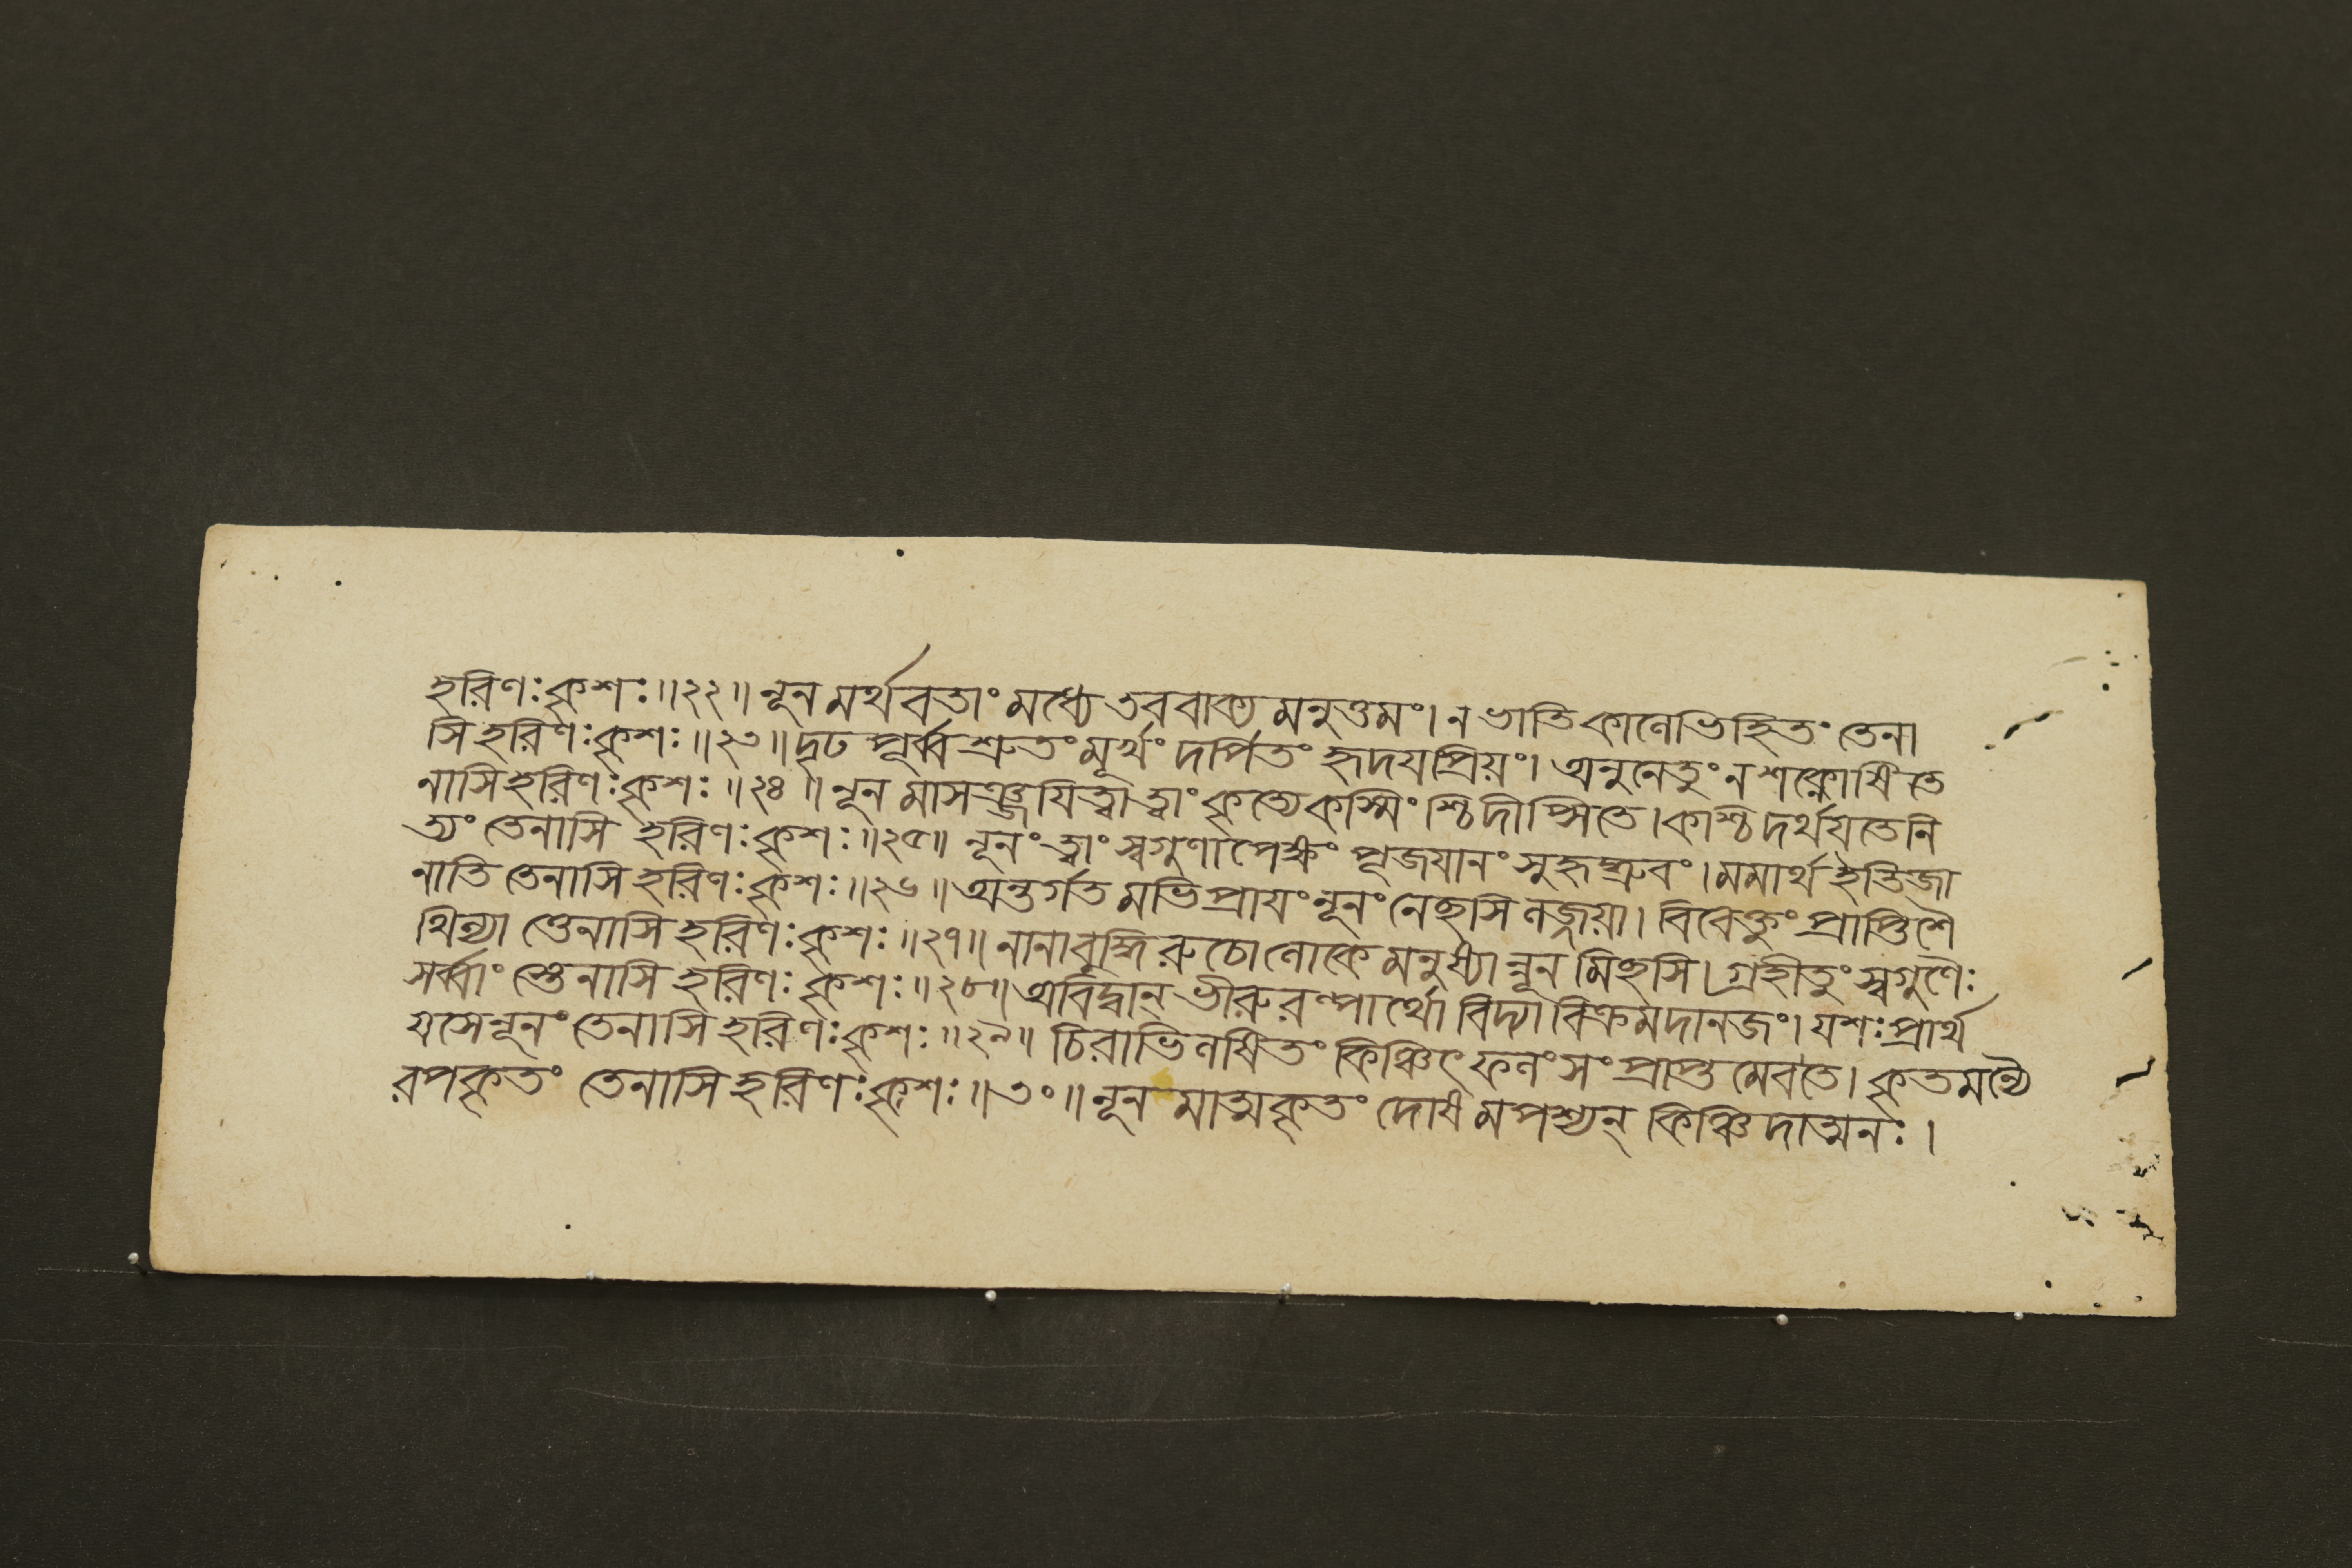 হরিণঃকৃশঃ॥২২॥নূনমর্থবতাংমধ্যেতববাক্যমনুত্তমং।নভাতিকালেভিহিতংতেনা
সিহরিণঃকৃশঃ॥২৩॥দৃঢপূর্ব্বশ্রুতংমূর্খংদর্পিতংহৃদযপ্রিয়ং।অনুনেতুংনশক্নোষিতে
নাসিহরিণঃকৃশঃ॥২৪॥নূনমাসঞ্জযিত্বাত্বাংকৃত্যেকস্মিংশ্চিদীপ্সিতে।কশ্চিদর্থযতেনি
ত্যংতেনাসি হরিণঃকৃশঃ॥২৫॥ নূনংত্বাংস্বগুণাপেক্ষং পূজযানংসুহৃদ্ধ্রুবং।মমার্থইতিজা
নাতি তেনাসিহরিণঃকৃশঃ॥২৬॥অন্তর্গতমভিপ্রাযংনূনংনেছসিলজ্জয়া।বিবেক্তুংপ্রাপ্তিশৈ
থিল্যাত্তেনাসিহরিণঃকৃশঃ॥২৭॥নানাবুদ্ধিরুচোলোকেমনুষ্যান্নূনমিছসি।গ্রহীতুংস্বগুণৈঃ
সর্ব্বাংস্তেনাসিহরিণঃকৃশঃ॥২৮॥অবিদ্বান্ভীরুরল্পার্থো বিদ্যাবিক্রমদানজং।যশঃপ্রার্থ
যসেনূনংতেনাসিহরিণঃকৃশঃ॥২৯॥ চিরাভিলষিতংকিঞ্চিৎফলংসংপ্রাপ্তমেবতে।কৃতমন্যৈ
রপকৃতং তেনাসিহরিণঃকৃশঃ॥৩০॥নূনমাত্মকৃতং দোষমপশ্যন্ কিঞ্চিদাত্মনঃ।